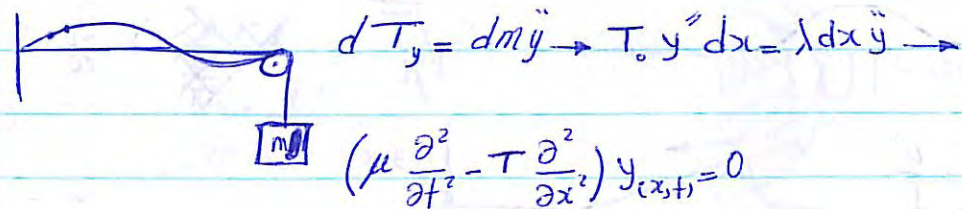 dT_y = dm ÿ → T₀ y″ dx = λ dx ÿ →
m
(μ ∂²/∂t² - T ∂²/∂x²) y(x,t) = 0